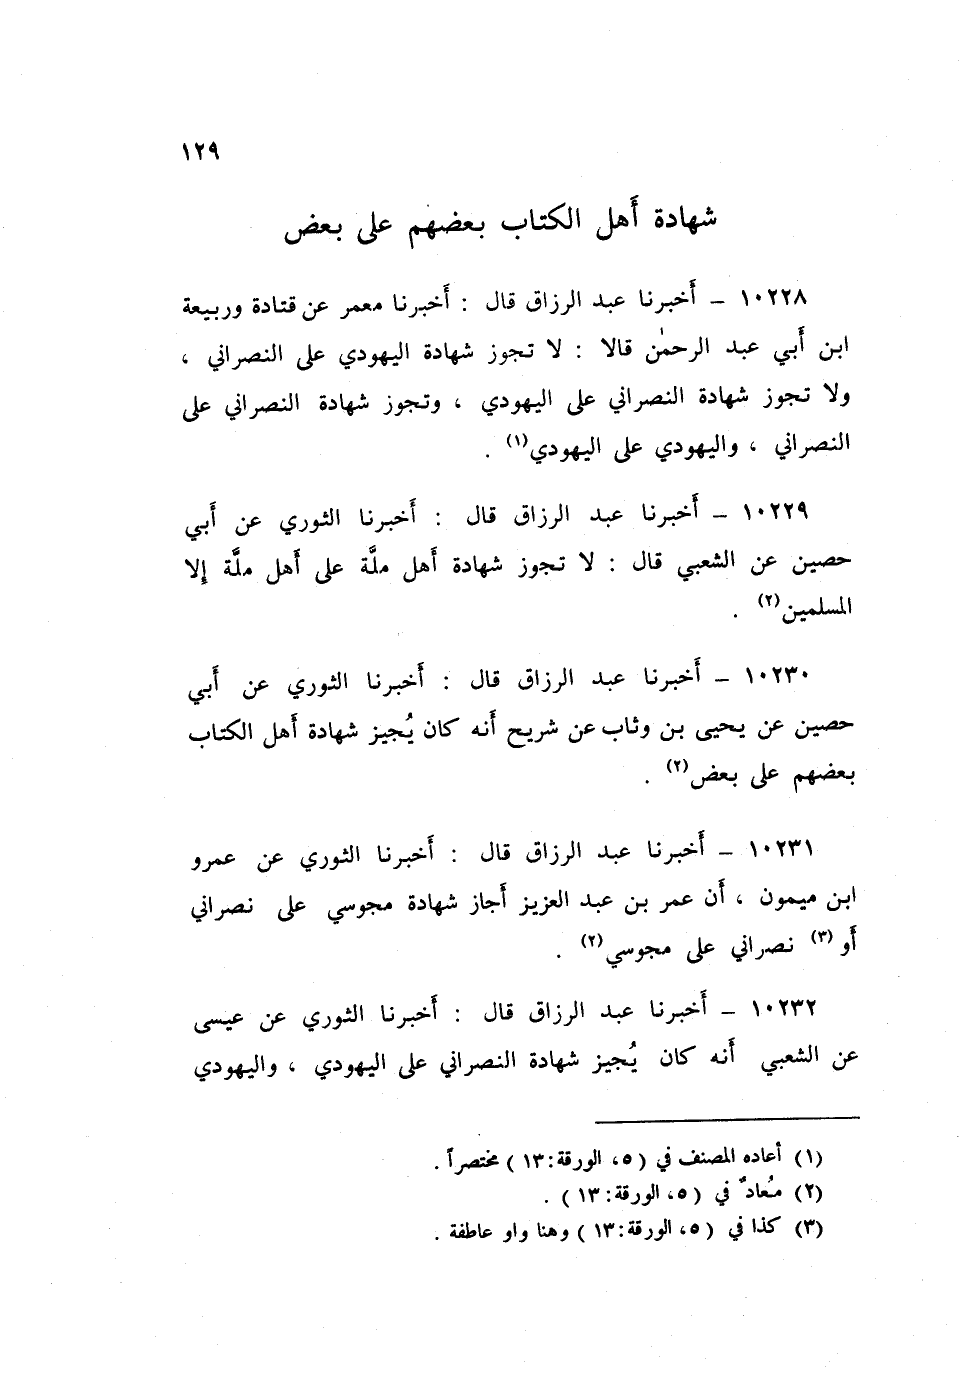 ١٢٩
شهادة أهل الكتاب بعضهم على بعض
١٠٢٢٨ – أخبرنا عبد الرزاق قال : أخبرنا معمر عن قتادة وربيعة
ابن أبي عبد الرحمٰن قالا : لا تجوز شهادة اليهودي على النصراني ،
ولا تجوز شهادة النصراني على اليهودي ، وتجوز شهادة النصراني على
النصراني ، واليهودي على اليهودي(١) .
١٠٢٢٩ – أخبرنا عبد الرزاق قال : أخبرنا الثوري عن أبي
حصين عن الشعبي قال : لا تجوز شهادة أهل ملَّة على أهل ملَّة إلا
المسلمين(٢) .
١٠٢٣٠ – أخبرنا عبد الرزاق قال : أخبرنا الثوري عن أبي
حصين عن يحيى بن وثاب عن شريح أنه كان يُجيز شهادة أهل الكتاب
بعضهم على بعض(٢) .
١٠٢٣١ – أخبرنا عبد الرزاق قال : أخبرنا الثوري عن عمرو
ابن ميمون ، أن عمر بن عبد العزيز أجاز شهادة مجوسي على نصراني
أو (٣) نصراني على مجوسي(٢) .
١٠٢٣٢ – أخبرنا عبد الرزاق قال : أخبرنا الثوري عن عيسى
عن الشعبي أنه كان يُجيز شهادة النصراني على اليهودي ، واليهودي
(١) أعاده المصنف في (٥، الورقة: ١٣) مختصراً .
(٢) مُعادٌ في (٥، الورقة: ١٣) .
(٣) كذا في (٥، الورقة: ١٣) وهنا واو عاطفة .